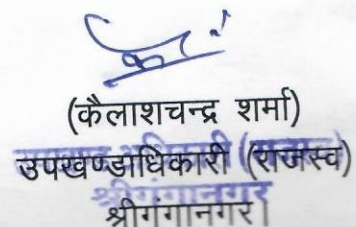 (कैलाशचन्द्र शर्मा)
उपखण्डाधिकारी (राजस्व)
श्रीगंगानगर